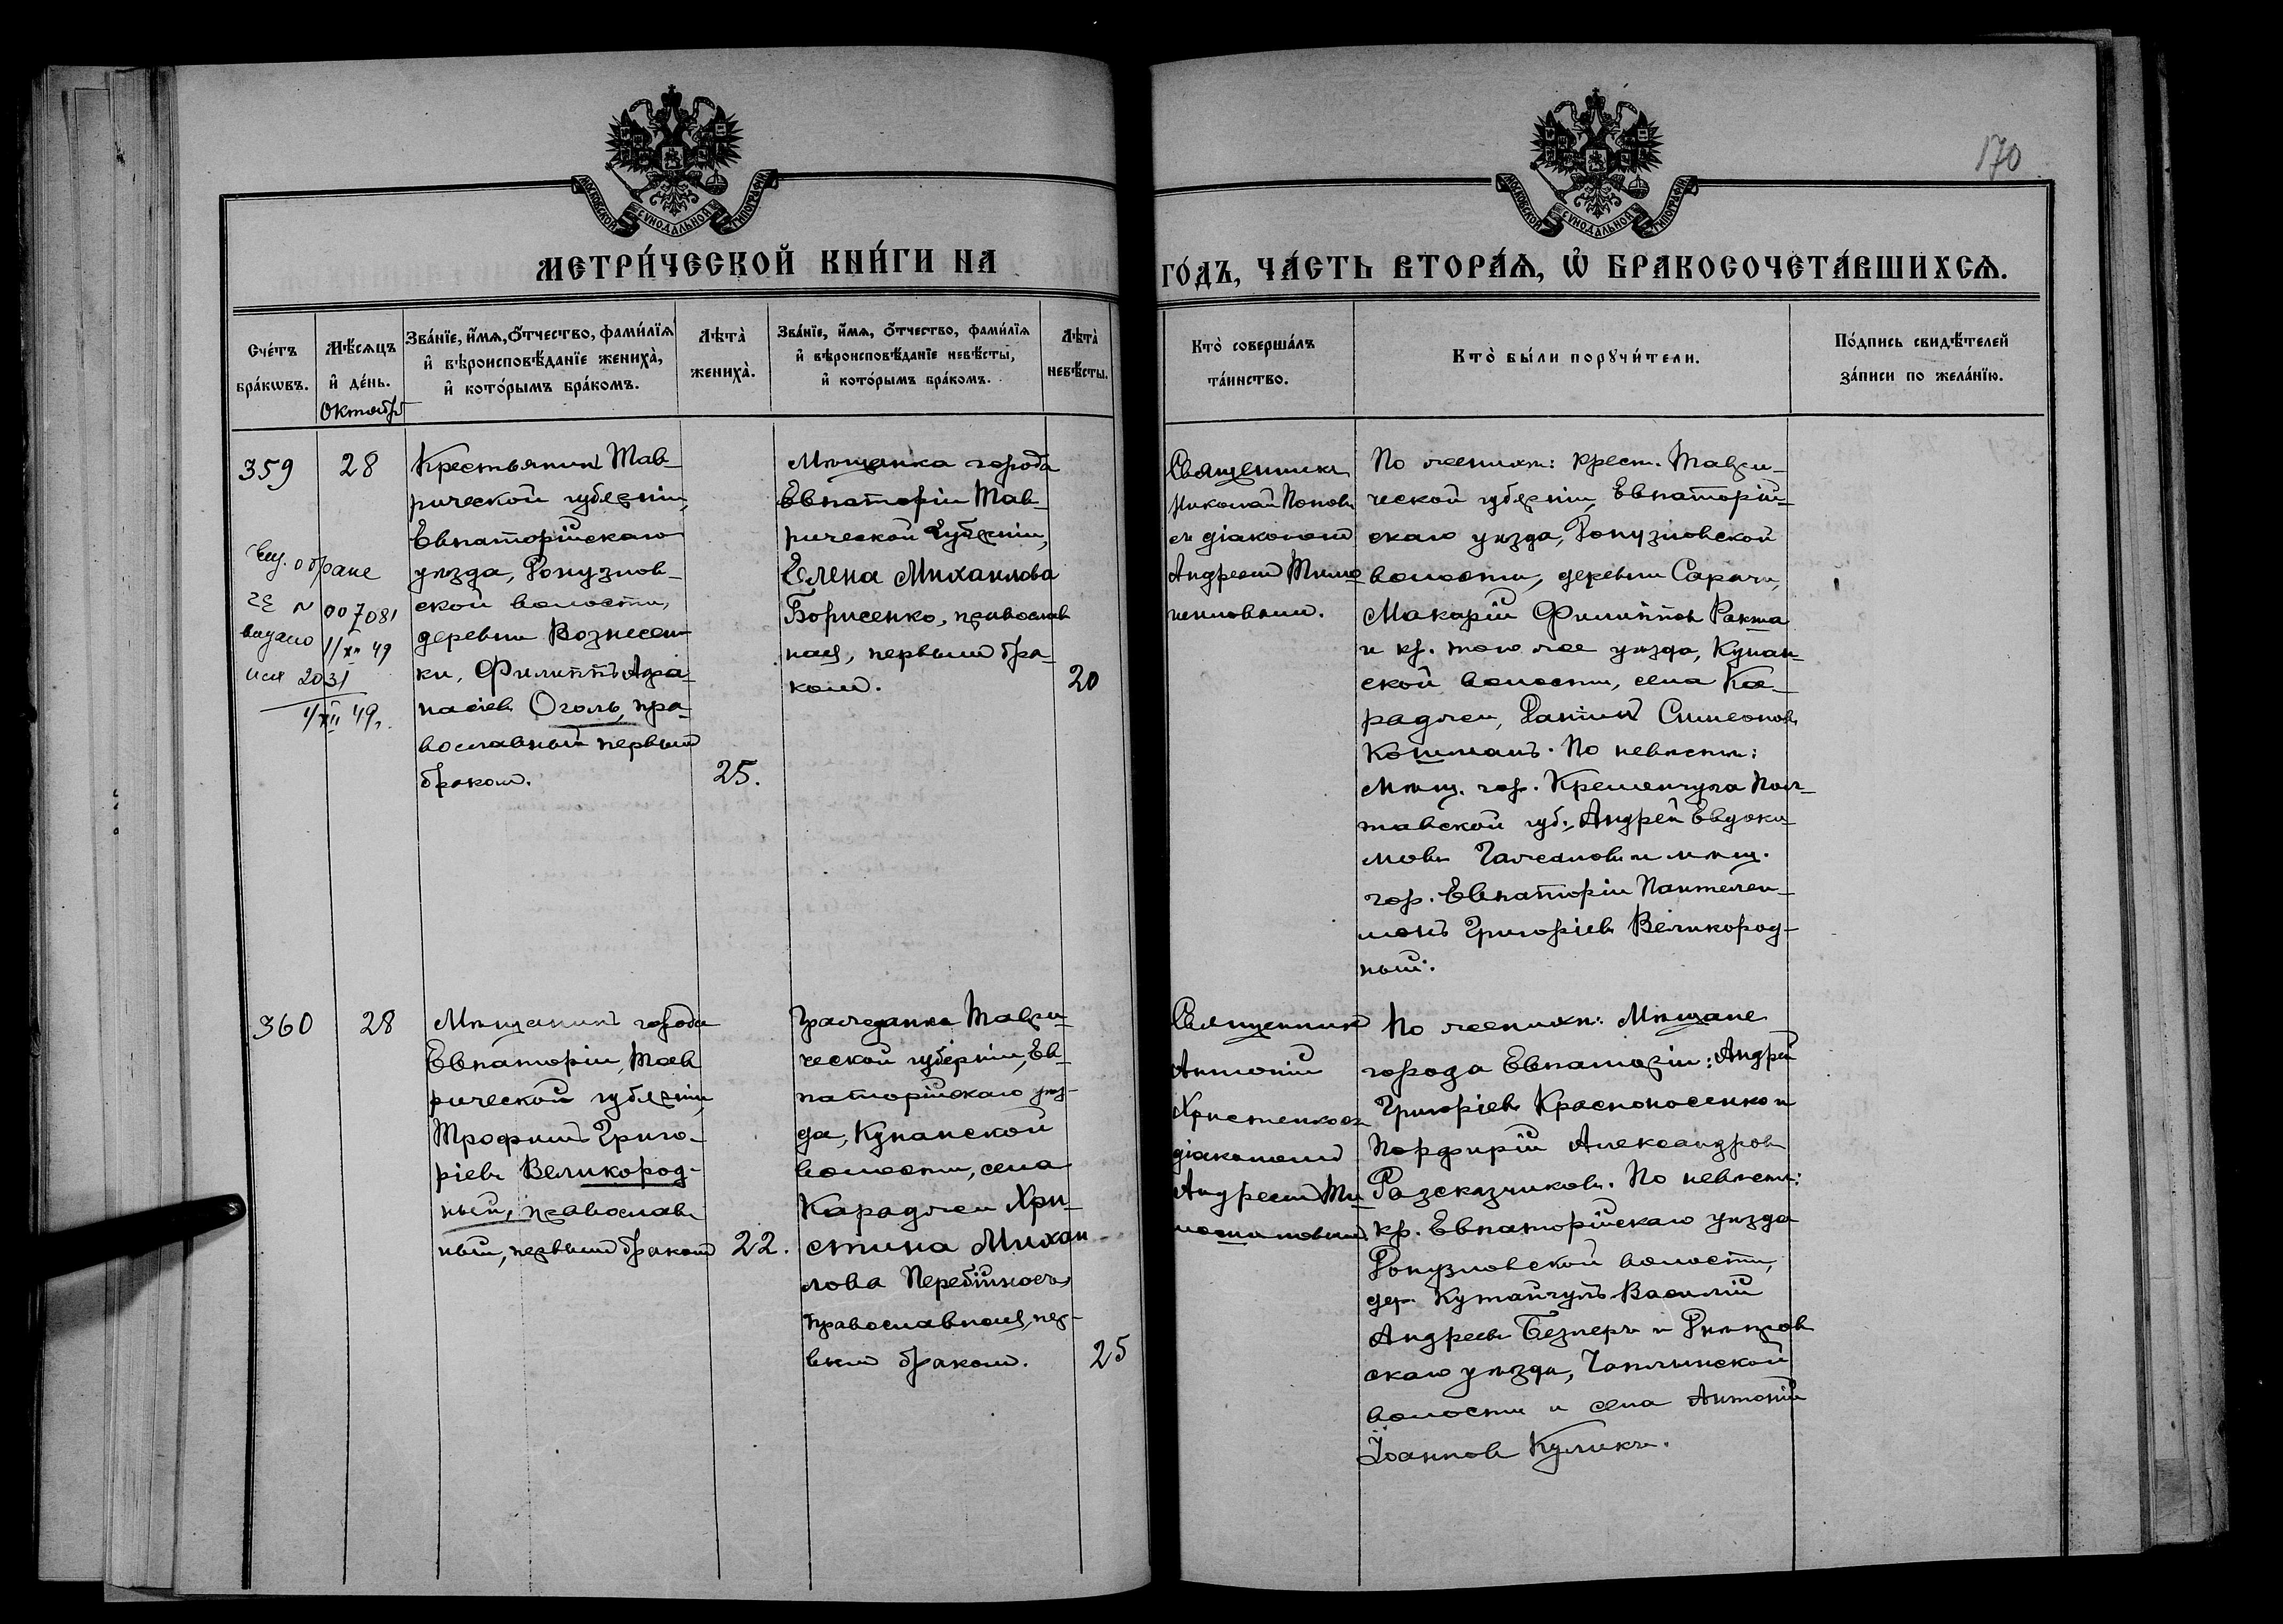 170
МОСКОВСКОЙ СѴНОДАЛЬНОЙ ТИПОГРАФІИ
МОСКОВСКОЙ СѴНОДАЛЬНОЙ ТИПОГРАФІИ
МЕТРИ́ЧЕСКОЙ КНИ́ГИ НА
ГО́ДЪ, ЧА́СТЬ ВТОРА́Ѧ, Ѡ҆ БРАКОСОЧЕТА́ВШИХСѦ.
Сче́тъ бра́кѡвъ.
Мѣ́сяцъ и҆ де́нь.
Октябрь
Зва́нїе, и҆́мя, ѻ҆́тчество, фами́лїя
и҆ вѣроисповѣ́данїе жениха̀,
и҆ кото́рымъ бра́комъ.
Лѣта̀
жениха̀.
Зва́нїе, и҆́мя, ѻ҆́тчество, фами́лїя
и҆ вѣроисповѣ́данїе невѣ́сты,
и҆ кото́рымъ бра́комъ.
Лѣта̀
невѣ́сты.
Кто̀ соверша́лъ
та́инство.
Кто̀ бы́ли порꙋчи́тели.
По́дпись свидѣ́телей
за́писи по жела́нїю.
359
28
о браке
N 007081
выдано 1/XII 49
исх 2031
1/XII 49г.
Крестьянинъ Тав-
рической губерніи,
Евпаторійскаго
уѣзда, Ропузнов-
ской волости,
деревни Вознесен
ки, Филиппъ Афа-
насіевъ Оголь, пра-
вославный первымъ
бракомъ.
25.
Мѣщанка города
Евпаторіи Тав-
рической Губерніи,
Елена Михаилова
Борисенко, православ
ная, первымъ бра-
комъ.
20
Священникъ
Николай Поповъ
съ діакономъ
Андреемъ Тимо
шеновымъ.
По женихѣ: крест. Таври-
ческой губерніи, Евпаторій-
скаго уѣзда, Ропузновской
волости, деревни Сарачи,
Макарій Филипповъ Ракша
и кр. того же уѣзда, Кунан-
ской волости, села Ка-
раджи, Фотій Симеоновъ
Кошманъ. По невѣстѣ:
Мѣщ. гор. Кременчуга Пол-
тавской губ. Андрей Евдоки-
мовъ и мѣщ.
гор. Евпаторіи Пантелеи-
монъ Григоріевъ Великород-
ный.
360
28
Мѣщанинъ города
Евпаторіи, Тав
рической губерніи,
Трофимъ Григо-
ріевъ Великород-
ный, православ
ный, первымъ бракомъ
22.
Гражданка Таври-
ческой губерніи, Ев-
паторійскаго уѣз-
да, Кунанской
волости, села
Караджи Хри-
стина Михаи
лова Перебійносъ
православная, пер-
вымъ бракомъ.
25
Священникъ
Антоній
діакономъ
Андреемъ
По женихѣ: Мѣщане
города Евпаторіи: Андрей
Григоріевъ Красноносенко и
Порфирій Александров
Разсказчиковъ. По невѣстѣ:
кр. Евпаторійскаго уѣзда
Ропузновской волости,
дер. Василій
Андреевъ
скаго уѣзда, Чаплынской
волости и села Антоній
Іоанновъ Куликъ.